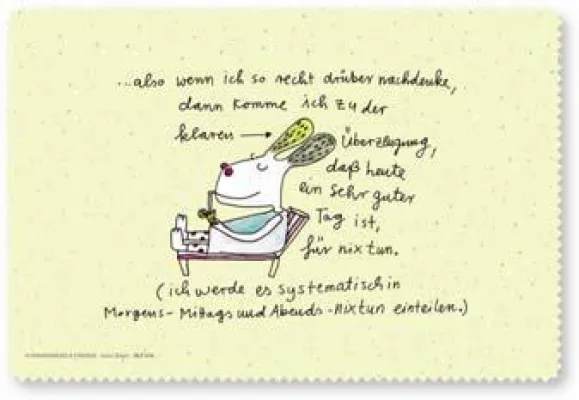 ...also wenn ich so recht drüber nachdenke,
dann komme ich zu der
klaren
Überzeugung,
daß heute
ein sehr guter
Tag ist,
für nix tun.
(ich werde es systematisch in
Morgens-Mittags und Abends-nixtun einteilen.)